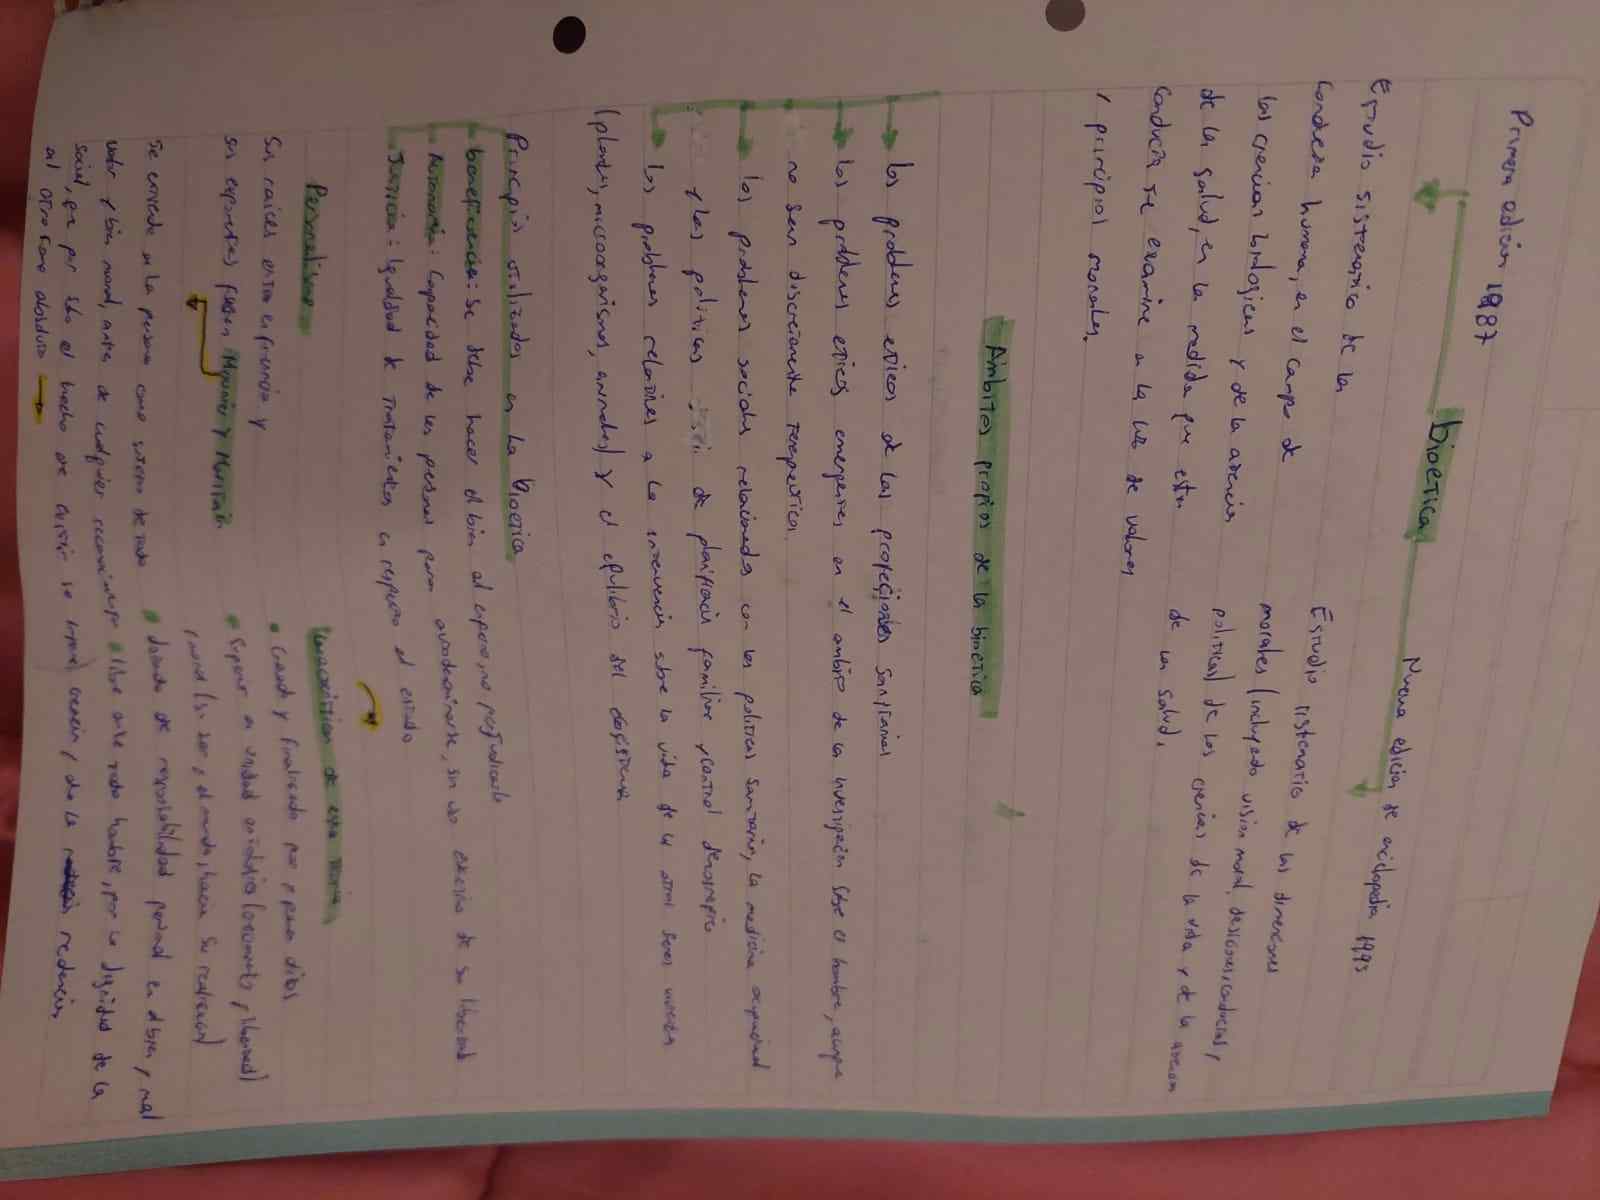 Primera edición 1987
bioética
Nueva edición de enciclopedia 1995
Estudio sistematico de la
Conducta humana, en el campo de
las ciencias biologicas y de la atención
de la salud, en la medida que esta
Conducta se examine a la luz de valores
y principios morales.
Estudio sistematico de las dimensiones
morales (incluyendo vision moral, desiciones, conductas,
politicas) de las ciencias de la vida y de la atención
de la salud.
Ámbitos propios de la bioética
los problemas eticos de las profesiones sanitarias
los problemas eticos emergentes en el ámbito de la investigación sobre el hombre, aunque
no sean directamente terapeutica
los problemas sociales relacionados con las politicas sanitarias, la medicina ocupacional
y las politicas de planificación familiar y control demografico
los problemas relaciones a la intervención sobre la vida de los otros seres vivientes
(plantas, microorganismos, animales) y el equilibrio del ecosistema
Principios utilizados en la bioética
beneficencia: Se debe hacer el bien al enfermo, no perjudicarlo
Autonomia: Capacidad de las personas para autodeterminarse, sin uso exesivo de su libertad
Justicia: Igualdad de tratamientos en respecto al estado
Personalismo
Sus raices estan en francia y
sus exponentes fueron Mounier y Maritain
Se entiende a la persona como sistema de todo
valor y bien moral, antes de cualquier reconocimiento
social, es por solo el hecho de existir se impone
al otro como absoluto
Caracteristicas de esta teoria
Creado y finalizado por y para dios
Superior en unidad ontologica (autonomia y libertad)
moral (su ser, el mundo, hacia su realización)
dotado de responsabilidad personal en el bien y mal
libre ante todo hombre, por la dignidad de la
creación, y de la redención